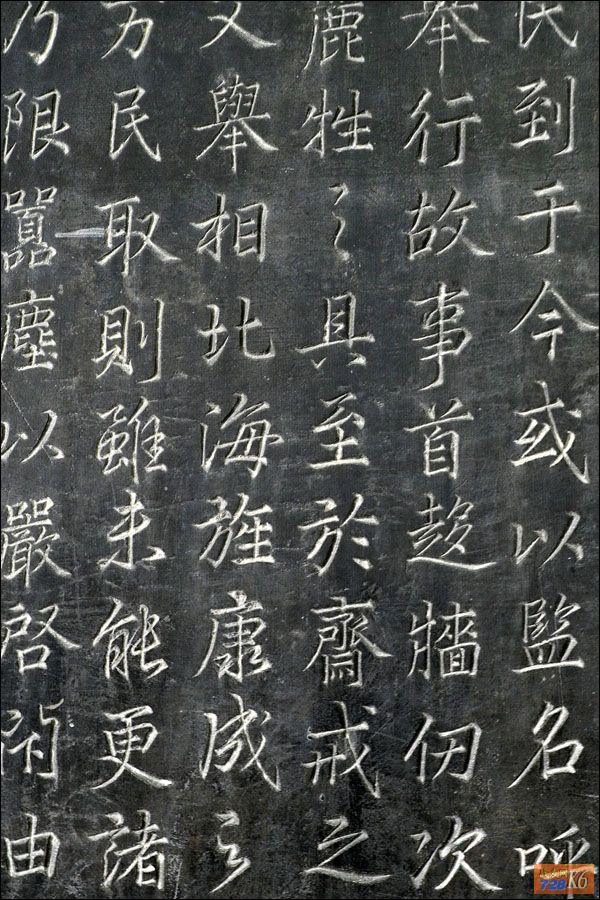 民到于今或以監名呼
舉行故事首趍牆仞次
麗牲之具至於齋戒之
文舉相北海旌康成之
民取則雖未能更諸
乃限囂塵以嚴启閇由
728 K6